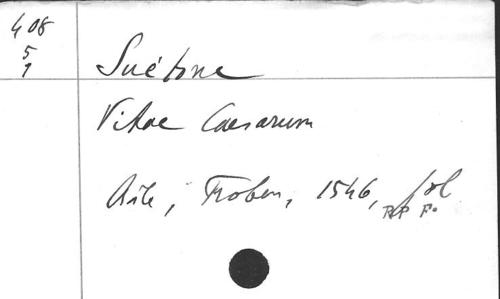 408
5
1
Suétone
Vitae Caesarum
Bâle, Froben, 1546, fol
RP F.